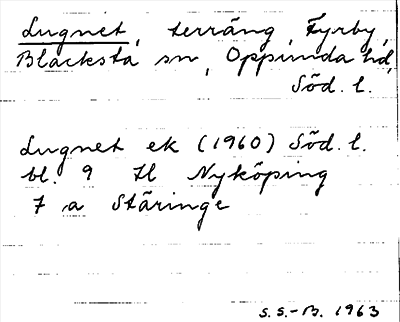 Lugnet, terräng, Fyrby,
Blacksta sn, Oppunda hd,
Söd. l.
Lugnet ek (1960) Söd. l.
bl. 9 H Nyköping
7 a Stäringe
S.S.-B. 1963